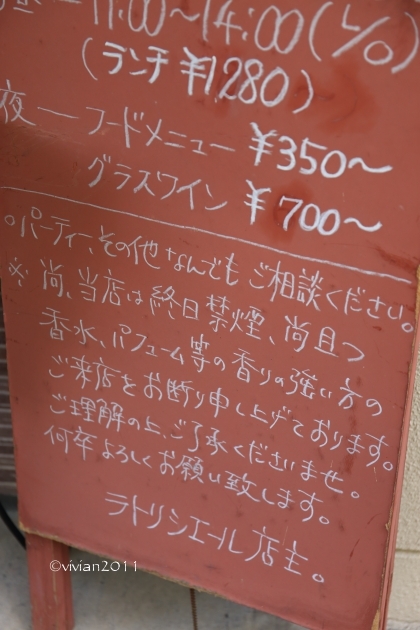 昼ー11:00〜14:00(L/O)
(ランチ ¥1,280)
夜ーフードメニュー ¥350〜
グラスワイン ¥700〜
○パーティ、その他なんでもご相談ください。
※尚、当店は終日禁煙、尚且つ
香水、パフューム等の香りの強い方の
ご来店をお断り申し上げております。
ご理解の上、ご了承くださいませ。
何卒よろしくお願い致します。
ラトリシエール店主。
©vivian2011